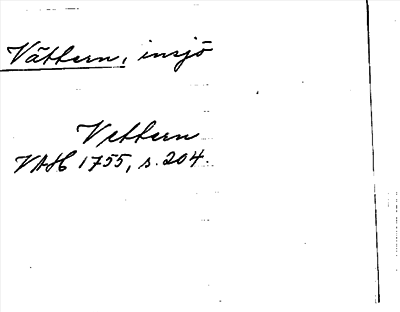 Vättern, insjö
Vettern
VAH 1755, s. 204.